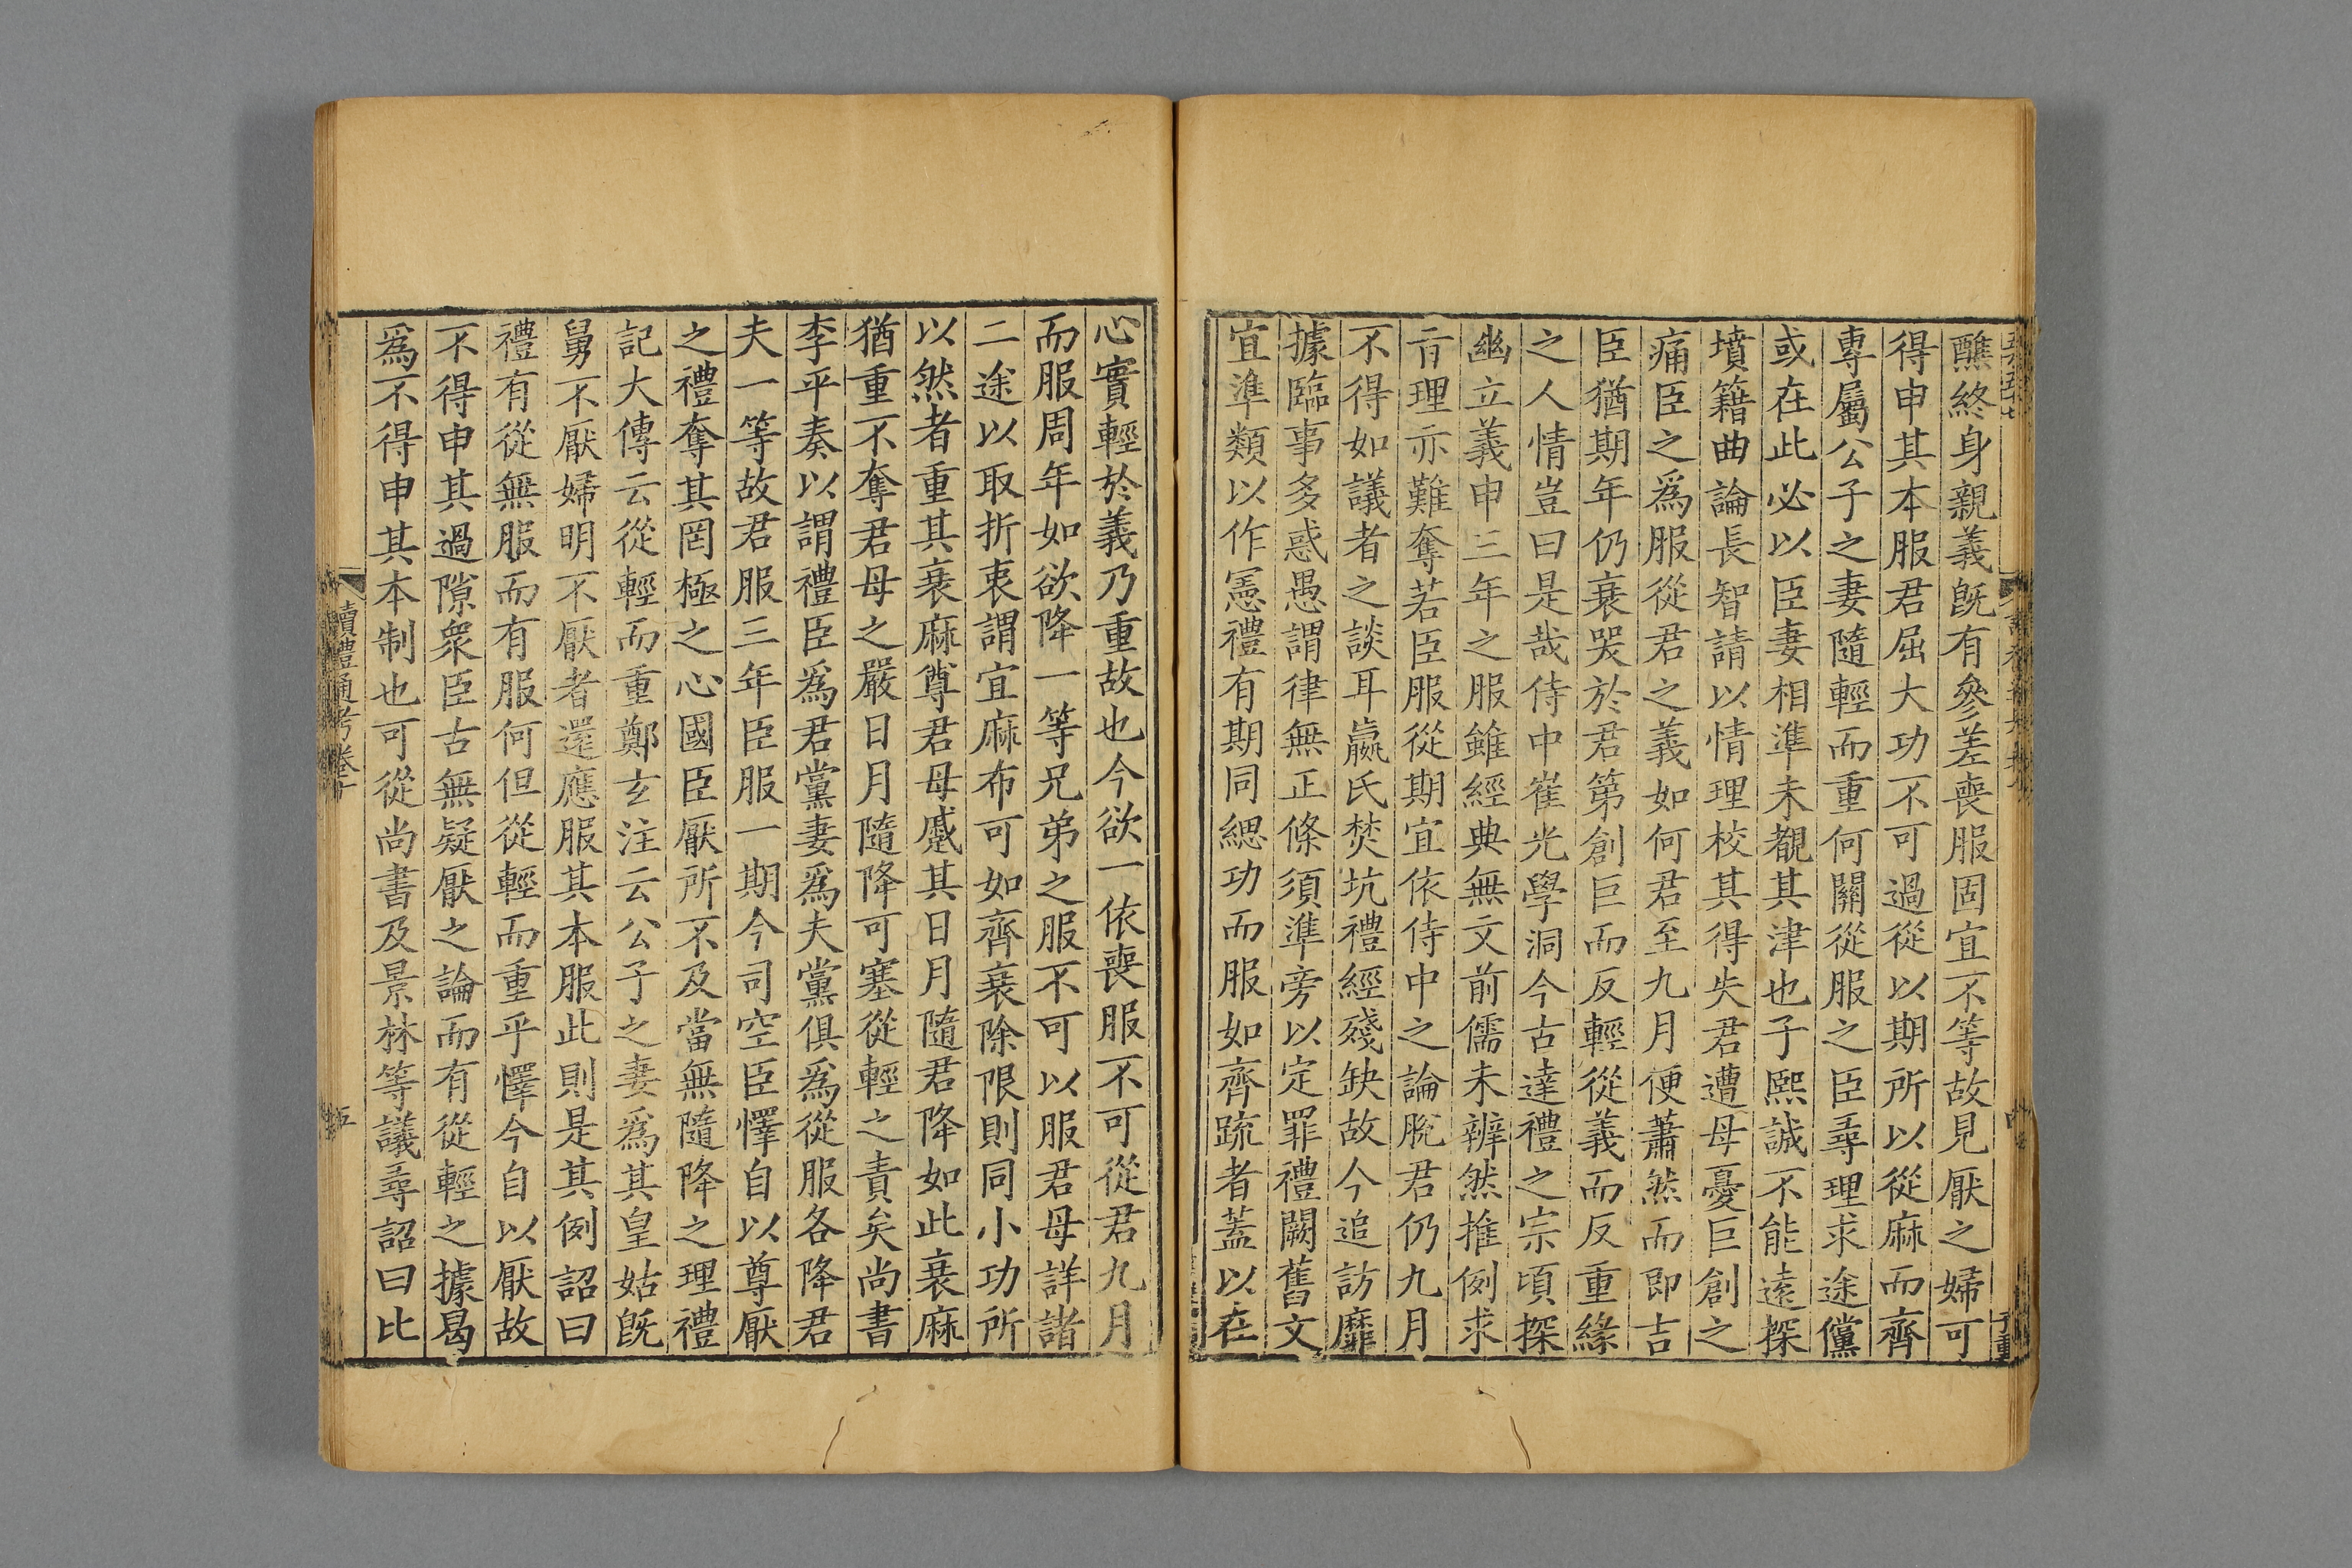 醮終身親義旣有參差喪服固宜不等故見厭之婦可
得申其本服君屈大功不可過從以期所以從麻而齊
專屬公子之妻隨輕而重何關從服之臣尋理求途儻
或在此必以臣妻相準未覩其津也子熙誠不能遠探
墳籍曲論長智請以情理校其得失君遭母憂巨創之
痛臣之爲服從君之義如何君至九月便蕭然而即吉
臣猶期年仍衰哭於君第創巨而反輕從義而反重緣
之人情豈曰是哉侍中崔光學洞今古達禮之宗頃探
幽立義申三年之服雖經典無文前儒未辨然推例求
旨理亦難奪若臣服從期宜依侍中之論脫君仍九月
不得如議者之談耳嬴氏焚坑禮經殘缺故今追訪靡
據臨事多惑愚謂律無正條須準旁以定罪禮闕舊文
宜準類以作憲禮有期同緦功而服如齊疏者蓋以在
心實輕於義乃重故也今欲一依喪服不可從君九月
而服周年如欲降一等兄弟之服不可以服君母詳諸
二途以取折衷謂宜麻布可如齊衰除限則同小功所
以然者重其衰麻尊君母蹙其日月隨君降如此衰麻
猶重不奪君母之嚴日月隨降可塞從輕之責矣尚書
李平奏以謂禮臣爲君黨妻爲夫黨俱爲從服各降君
夫一等故君服三年臣服一期今司空臣懌自以尊厭
之禮奪其罔極之心國臣厭所不及當無隨降之理禮
記大傳云從輕而重鄭玄注云公子之妻爲其皇姑旣
舅不厭婦明不厭者還應服其本服此則是其例詔曰
禮有從無服而有服何但從輕而重乎懌今自以厭故
不得申其過隙衆臣古無疑厭之論而有從輕之據曷
爲不得申其本制也可從尚書及景林等議尋詔曰比
讀禮通考卷十
五